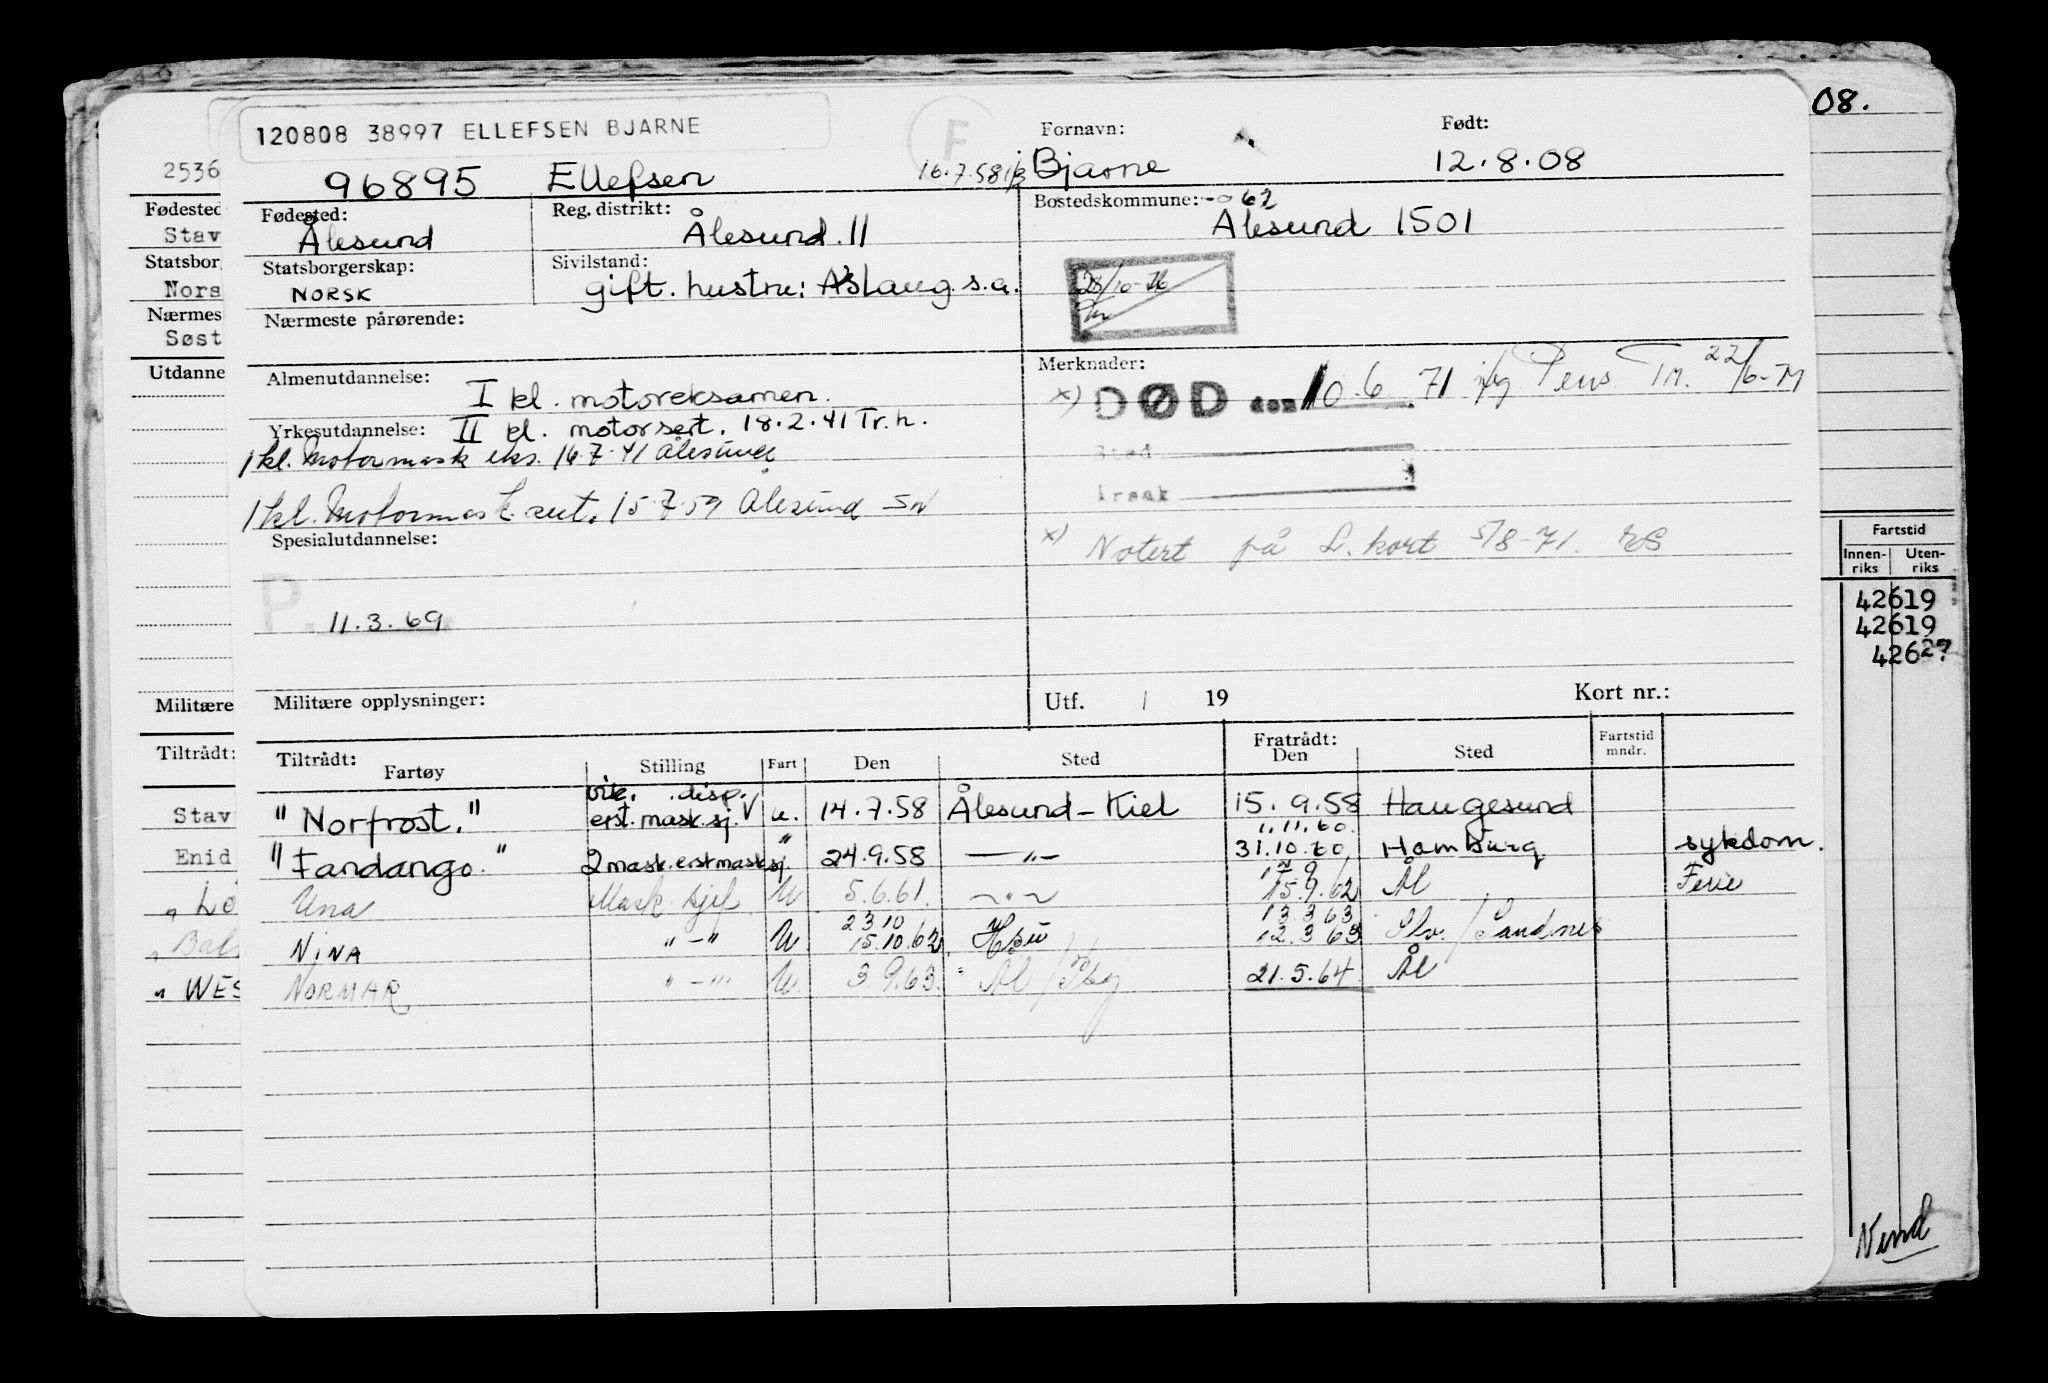 08.
120808 38997 ELLEFSEN BJARNE
F
Fornavn:
Født:
2536
96895 Ellefsen 16.7.58 Bjarne 12.8.08
Fødested
Fødested:
Reg. distrikt:
Bostedskommune: -062
Stav
Ålesund
Ålesund II
Ålesund 1501
Statsbor
Statsborgerskap:
Sivilstand:
Nors
NORSK
gift. hustru: Åslaug s.a.
28/10-76
Nærmes
Nærmeste pårørende:
Søst
Utdanne
Almenutdannelse:
I kl. motoreksamen.
Merknader:
x) DØD den 10.6.71 Pens. Tr. 22/6-71
Yrkesutdannelse: II kl. motorsert. 18.2.41 Tr.h.
1 kl. Motormask eks. 16.7.41 Ålesund
Sted
1 kl. Motormask. sert. 15.7.59 Ålesund SN
Årsak
Spesialutdannelse:
x) Notert på L. kort 5/8-71. RS
Fartstid
Innen-riks Uten-riks
P. 11.3.69
42619
42619
42627
Militære
Militære opplysninger:
Utf. / 19
Kort nr.:
Tiltrådt:
Tiltrådt:
Fartøy
Stilling
Fart
Den
Sted
Fratrådt:
Den
Sted
Fartstid mndr.
vik. disp.
Stav
"Norfrost." erst. mask.sj. V u. 14.7.58 Ålesund - Kiel 15.9.58 Haugesund
1.11.60.
Enid
"Fandango." 2 mask. erst mask sj. " 24.9.58 -"- 31.10.60 Hamburg sykdom.
17.9
" Lø
Una Mask. sjef U 5.6.61. -"- 15.9.62 Ål Ferie
23 10
13 3 63
" Bals
NINA "-" U 15.10.62 Hsu 12.3 63 Slv. / Sandnes
" WES
NORMAR "-"" U. 3.9.63. Ål / 21.5.64 Ål